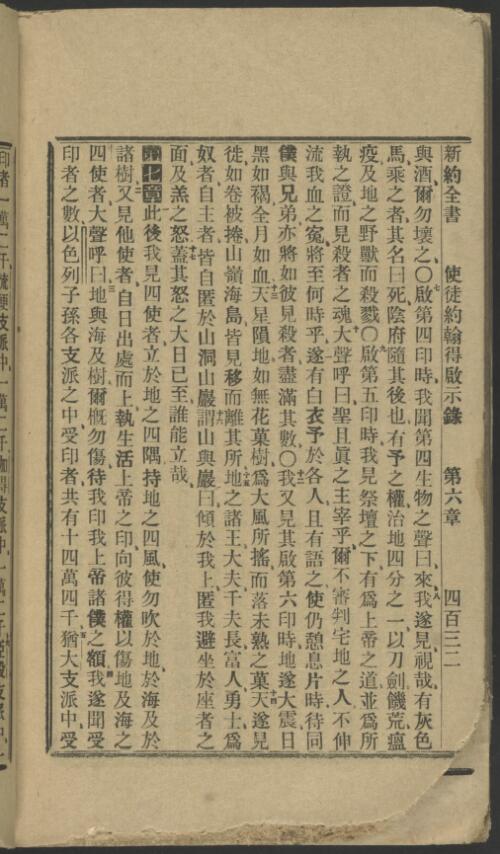 新約全書 使徒約翰得啟示錄 第六章 四百三二
與酒爾勿壞之〇七啟第四印時我聞第四生物之聲曰來八我遂見視哉有灰色
馬乘之者其名曰死陰府隨其後也有予之權治地四分之一以刀劍饑荒瘟
疫及地之野獸而殺戮〇九啟第五印時我見祭壇之下有爲上帝之道並爲所
執之證而見殺者之魂十大聲呼曰聖且眞之主宰乎爾不審判宅地之人不伸
流我血之寃將至何時乎遂有白衣予於各人且有語之使仍憩息片時待同
僕與兄弟亦將如彼見殺者盡滿其數〇十二我又見其啟第六印時地遂大震日
黑如褐全月如血十三天星隕地如無花菓樹爲大風所搖而落未熟之菓十四天遂見
徙如卷被捲山嶺海島皆見移而離其所十五地之諸王大夫千夫長富人勇士爲
奴者自主者皆自匿於山洞山巖十六謂山與巖曰傾於我上匿我避坐於座者之
面及羔之怒十七蓋其怒之大日已至誰能立哉
第七章一此後我見四使者立於地之四隅持地之四風使勿吹於地於海及於
諸樹二又見他使者自日出處而上執生活上帝之印向彼得權以傷地及海之
四使者大聲呼曰三地與海及樹爾槪勿傷待我印我上帝諸僕之額四我遂聞受
印者之數以色列子孫各支派之中受印者共有十四萬四千五猶大支派中受
印者一萬二千流便支派中一萬二千迦得支派中一萬二千